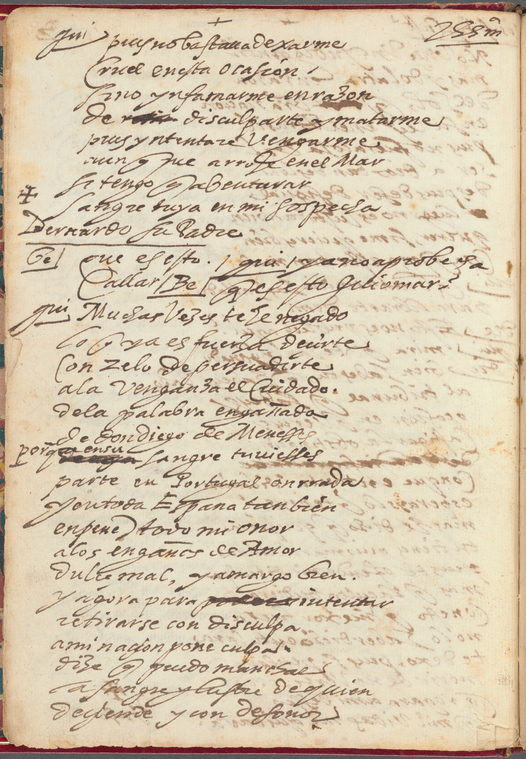 gui pues no bastaua dexarme
Cruel en esta ocasion
sino ynfamarme en razon
de disculparte y matarme
pues yntentare Vengarme
aunque me arroje en el Mar
si tengo q abenturar
sangre tuya en mi sospecha
Bernardo su Padre
Be que es esto. gui ya no aprobecha
Callar Be q es esto Guiomar?
gui Muchas Vezes te he negado
lo q ya es fuerça decirte
Con zelo de persuadirte
a la Venganza el Cuidado.
de la palabra engañado
de don diego de Meneses
porq en su sangre tuuieses
parte en Portugal onrrada
y en toda España tambien
enpene todo mi onor
a los engaños de Amor
dulce mal, y amargo bien.
y agora para intentar
retirarse con disculpa
a mi nacion pone culpa
dize q puedo manchar
la sangre y lustre de quien
deciende y con desonor